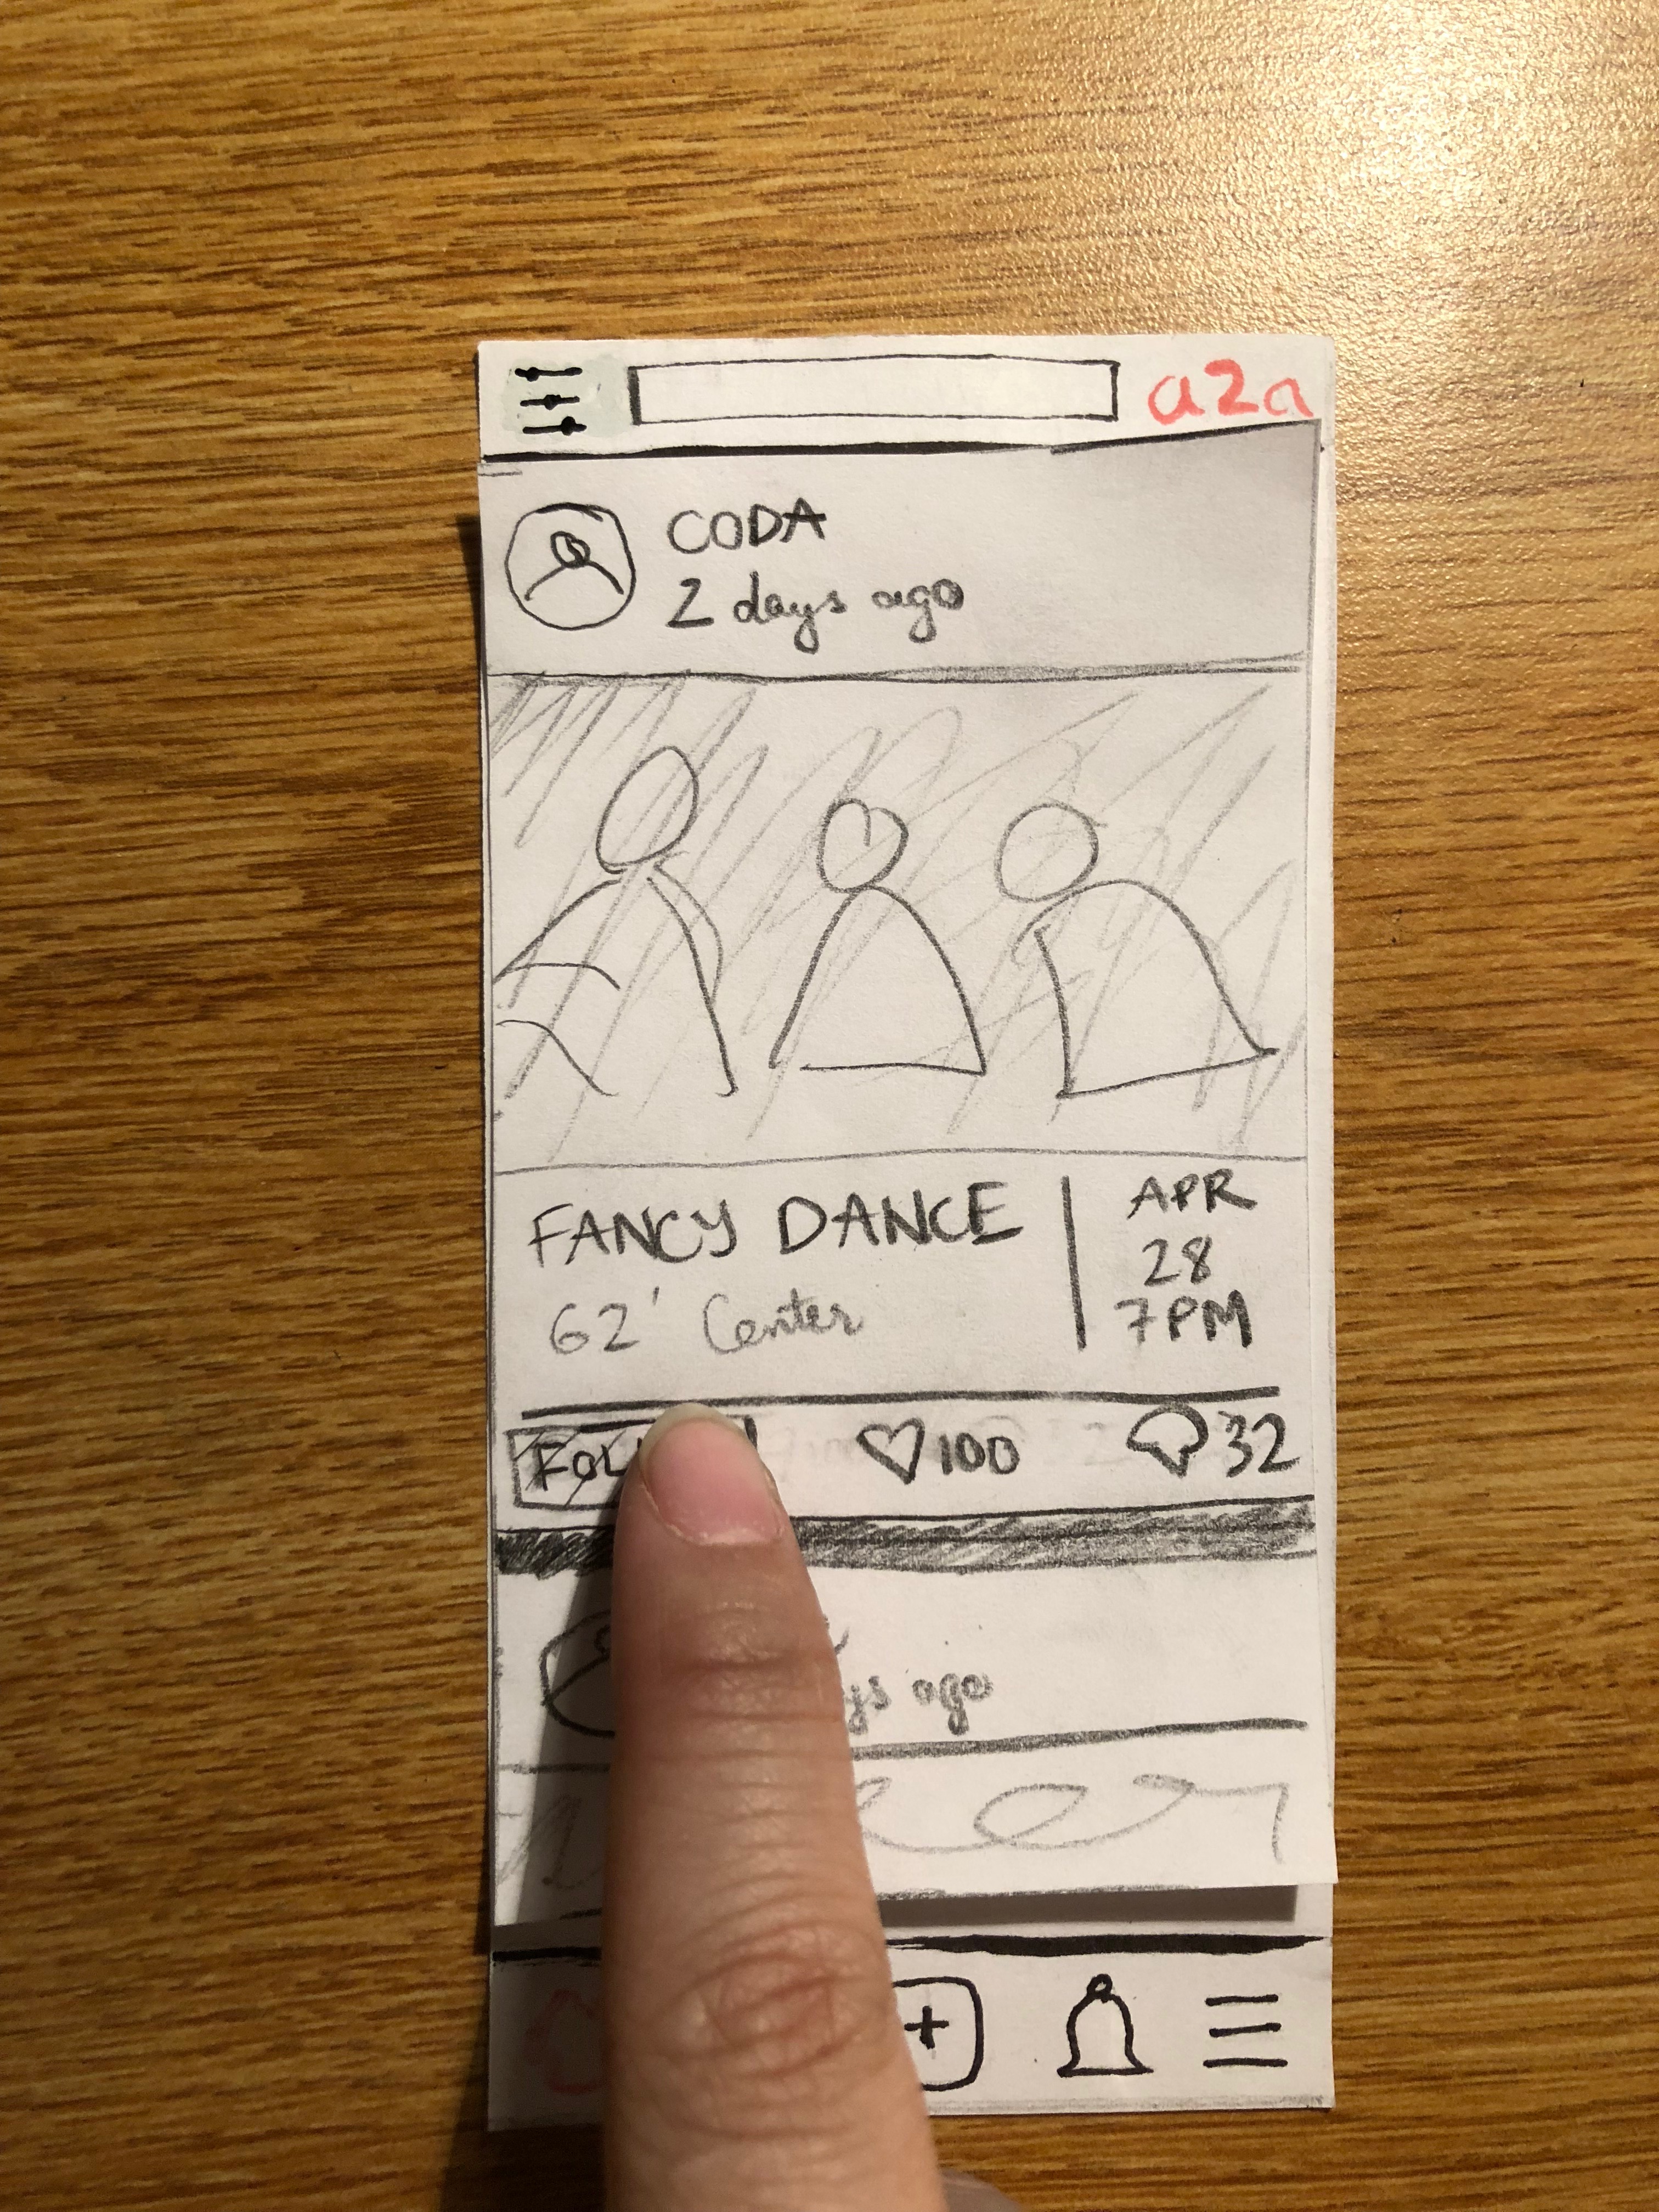 a2a
CODA
2 days ago
FANCY DANCE
62' Center
APR
28
7PM
100
32
ago